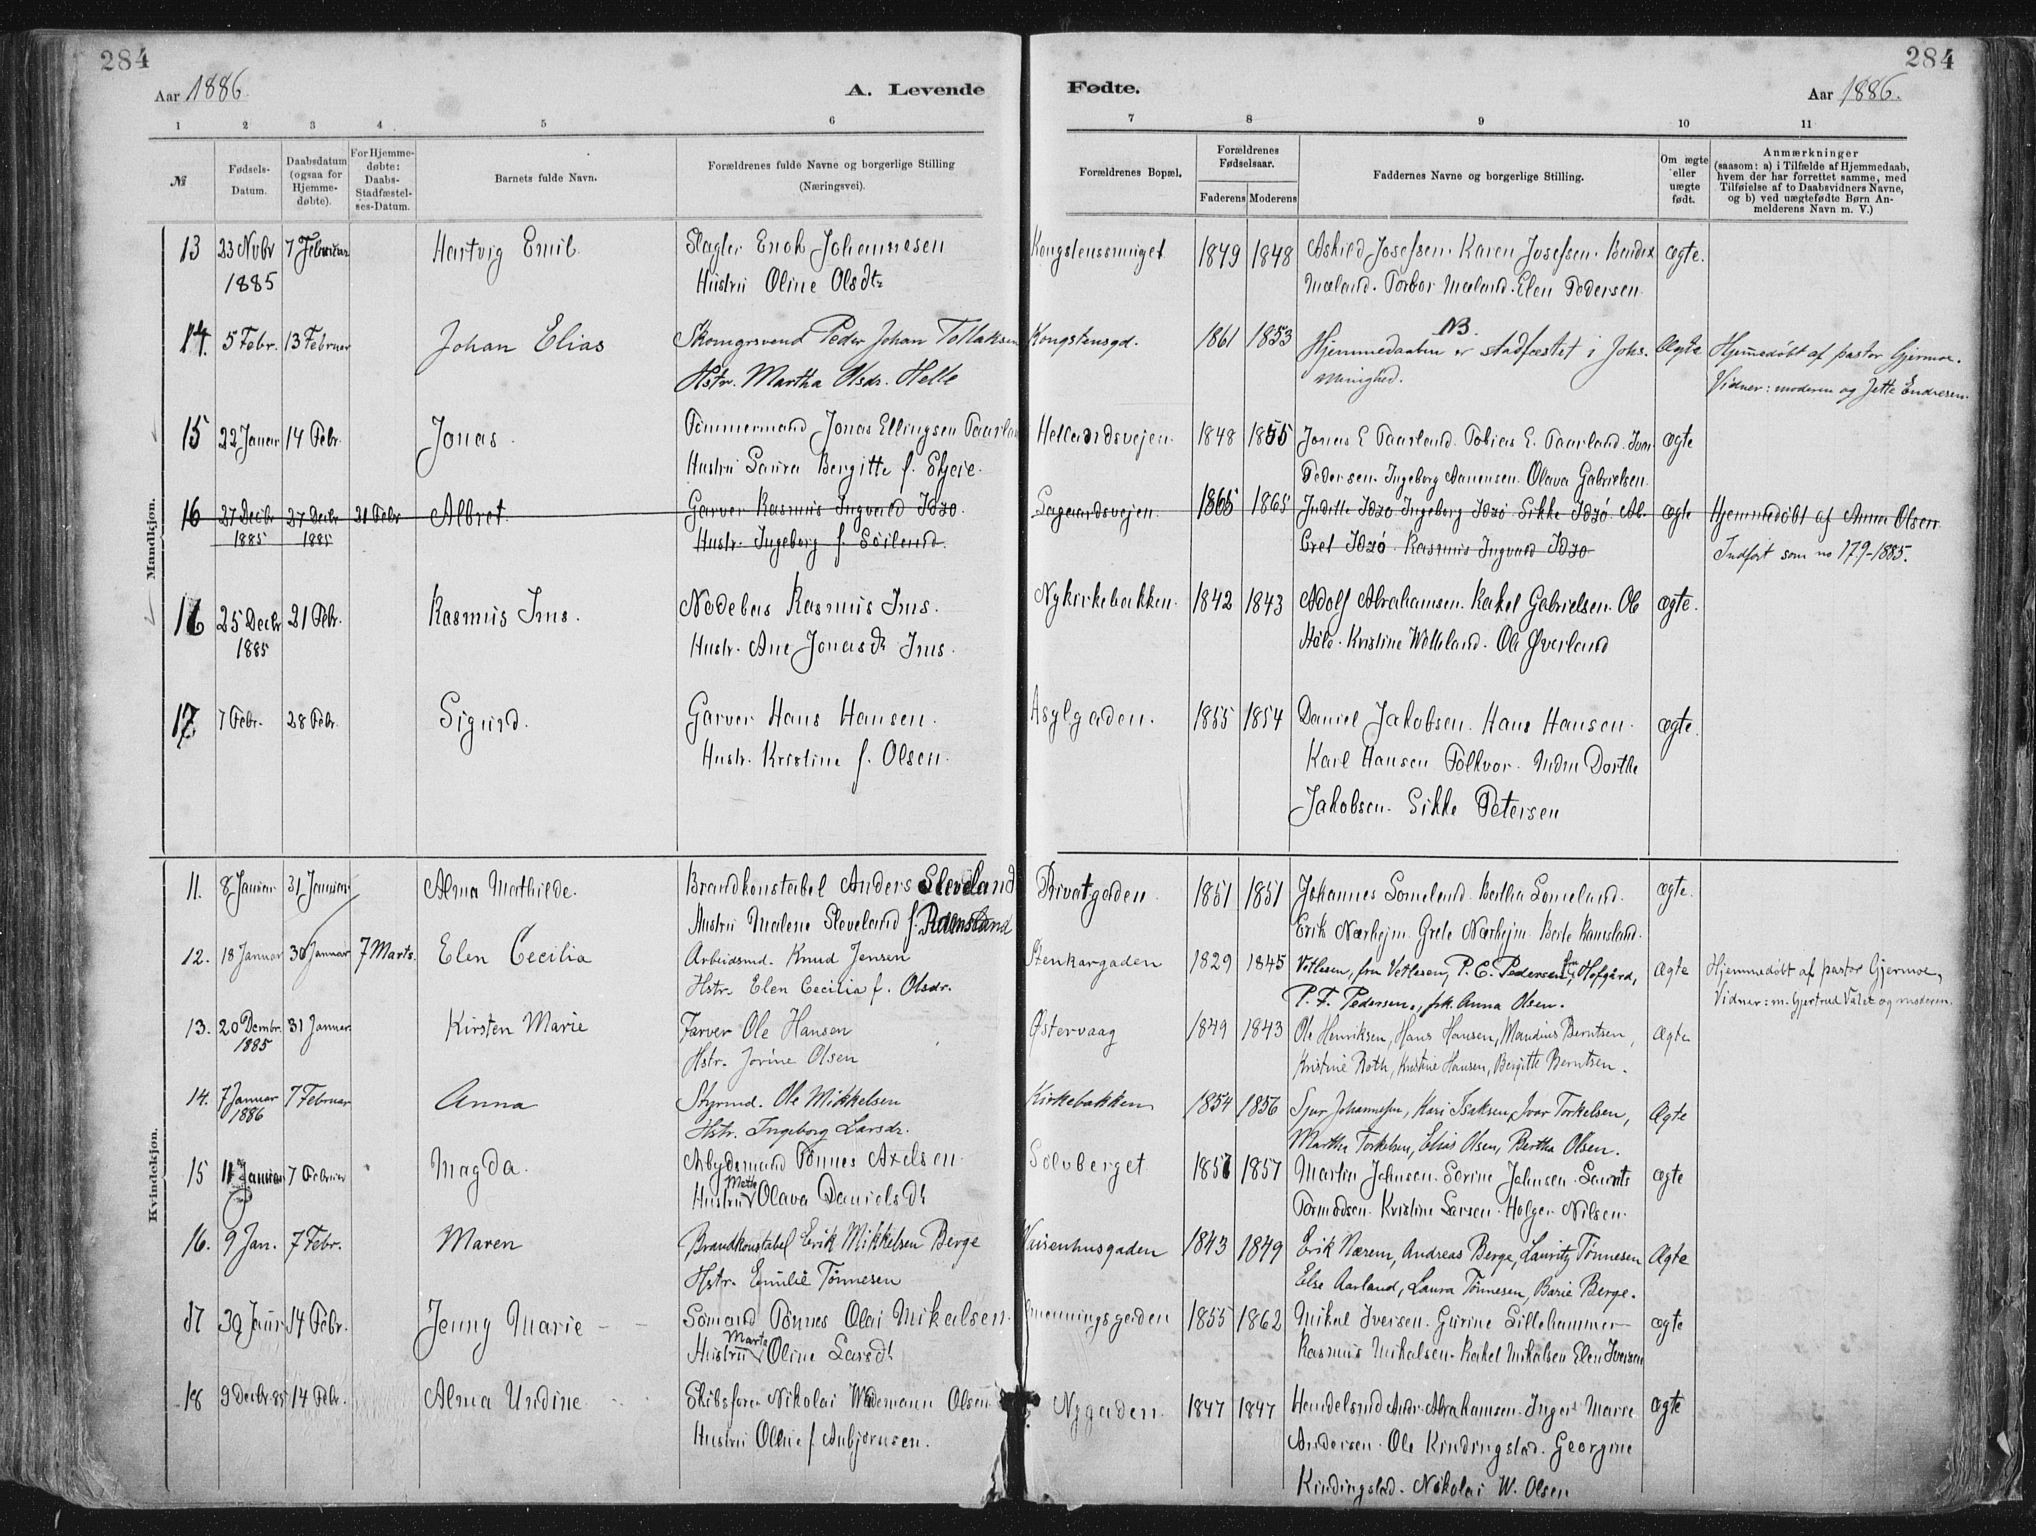 284
284
Aar 1886.
A. Levende
Fødte.
Aar 1886.
1 2 3 4 5 6 7 8 9 10 11
№
Fødsels-Datum.
Daabsdatum (ogsaa for Hjemme-døbte).
For Hjemme-døbte: Daabs-Stadfæstel-ses-Datum.
Barnets fulde Navn.
Forældrenes fulde Navne og borgerlige Stilling
(Næringsvei).
Forældrenes Bopæl.
Forældrenes Fødselsaar.
Faderens Moderens
Faddernes Navne og borgerlige Stilling.
Om ægte eller uægte født.
Anmærkninger
(saasom: a) i Tilfælde af Hjemmedaab,
hvem der har forrettet samme, med
Tilføielse af to Daabsvidners Navne,
og b) ved uægtefødte Børn An-
melderens Navn m. V.)
Mandkjøn.
13 23 Novbr 7 Februar Hartvig Emil Slagter Enok Johannesen Kongstenssmuget 1849 1848 Askild Josefsen. Karen Josefsen. Bendix ægte.
1885 Hustru Oline Olsdtr Mæland. Torbor Mæland. Elen Pedersen
14. 5 Febr. 13 Februar Johan Elias Skomgrsvend Peder Johan Tollaksen Kongstensgd. 1861 1853 NB. Hjemmedaaben er stadfæstet i Johs. Ægte Hjemmedøbt af pastor Gjermoe.
Hstr. Martha Olsdr. Helle menighed. Vidner: moderen og Jette Endresen.
15 22 Januar 14 Febr. Jonas. Tømmermand Jonas Ellingsen Taarland Hellandsvejen. 1848 1855 Jonas E Taarland. Tobias E. Taarland. Ivar ægte
Hustru Laura Bergitte f. Skjeie. Pedersen. Ingeborg Aanensen. Olava Gabrielsen
16 27 Decbr 27 Decbr 21 Febr Albret. Garver Rasmus Ingvard Idsø. Lagaardsvejen. 1865 1865 Juditte Idsø Ingeborg Idsø Sikke Idsø. Al- ægte Hjemmedøbt af Anna Olsen.
1885 1885 Hustr. Ingeborg f. Søiland. bret Idsø. Rasmus Ingvard Idsø Indført som no 179-1885.
16 25 Decbr 21 Febr. Rasmus Ims. Nodebas Rasmus Ims. Nykirkebakken. 1842 1843 Adolf Abrahamsen. Rakel Gabrielsen. Ole ægte.
1885 Hustr. Ane Jonasdtr Ims. Kristine Welleland. Ole Øverland
17 7 Febr. 28 Febr. Sigurd. Garver Hans Hansen. Asylgaden. 1855 1854 Daniel Jakobsen. Hans Hansen. ægte.
Hustr. Kristine f. Olsen. Karl Hansen Folkvor. Dorthe
Jakobsen. Sikke Petersen
Kvindekjøn.
11. 8 Januar 31 Januar Alma Mathilde. Brandkonstabel Anders Sleveland Privatgaden. 1851 1851 Johannes Someland. Bertha Someland. ægte.
Hustru Malene Sleveland f. Ramsland Erik Nærhejm. Grete Nærhejm. Berte Ramsland.
12. 18 Januar 30 Januar 7 Marts. Elen Cecilia Arbeidsmd. Knud Jensen Stenkargaden 1829 1845 Vetlesen, fru Vetlesen, P. C. Pedersen, fru Hofgård, Ægte Hjemmedøbt af pastor Gjermoe,
Hstr. Elen Cecilia f. Olsdr. P. F. Pedersen, frk. Anna Olsen. Vidner: m. Gjertrud Valet og moderen.
13. 20 Decmbr. 31 Januar Kirsten Marie Farver Ole Hansen Østervaag 1849 1843 Ole Henriksen, Hans Hansen, Maudius Berntsen, Ægte
1885 Hstr. Jorine Olsen Kristine Roth, Kristine Hansen, Bergitte Berntsen.
14. 7 Januar 7 Februar Anna Styrmd. Ole Mikkelsen Kirkebakken 1854 1856 Sjur Johannesen, Kari Isaksen, Ivar Torkelsen, Ægte
1886 Hstr. Ingeborg Larsdr. Martha Torkelsen, Elias Olsen, Bertha Olsen.
15 11 Januar 7 Februar Magda. Arbydsmand Tønnes Axelsen Sølvberget 1857 1857 Martin Johnsen. Serine Johnsen. Laurits ægte
Hustru Mette Olava Danielsdt Tormodsen. Kristine Larsen. Holger Nilsen.
16. 9 Jan. 7 Febr. Maren Brandkonstabel Erik Mikkelsen Berge Vaisenhusgaden 1843 1849 Erik Nærem, Andreas Berge, Lauritz Tønnesen Ægte
Hstr. Emilie Tønnesen Else Aarland, Laura Tønnesen, Barie Berge.
17 30 Janr 14 Febr. Jenny Marie Sømand Tønnes Olai Mikalsen 1855 1862 Mikal Iversen. Gurine Lillehammer ægte
Hustru Marta Oline Larsdt Rasmus Mikalsen. Rakel Mikalsen Elen Iversen
18 9 Decbr. 85 14 Febr. Alma Undine Skibsfører Nikolai Wedemann Olsen Nygaden. 1847 1847 Handelsmd Andr. Abrahamsen. Inger Marie ægte
Hustru Oline f Asbjørnsen. Andersen. Ole Kindingstad. Georgine
Kindingstad. Nikolai W. Olsen